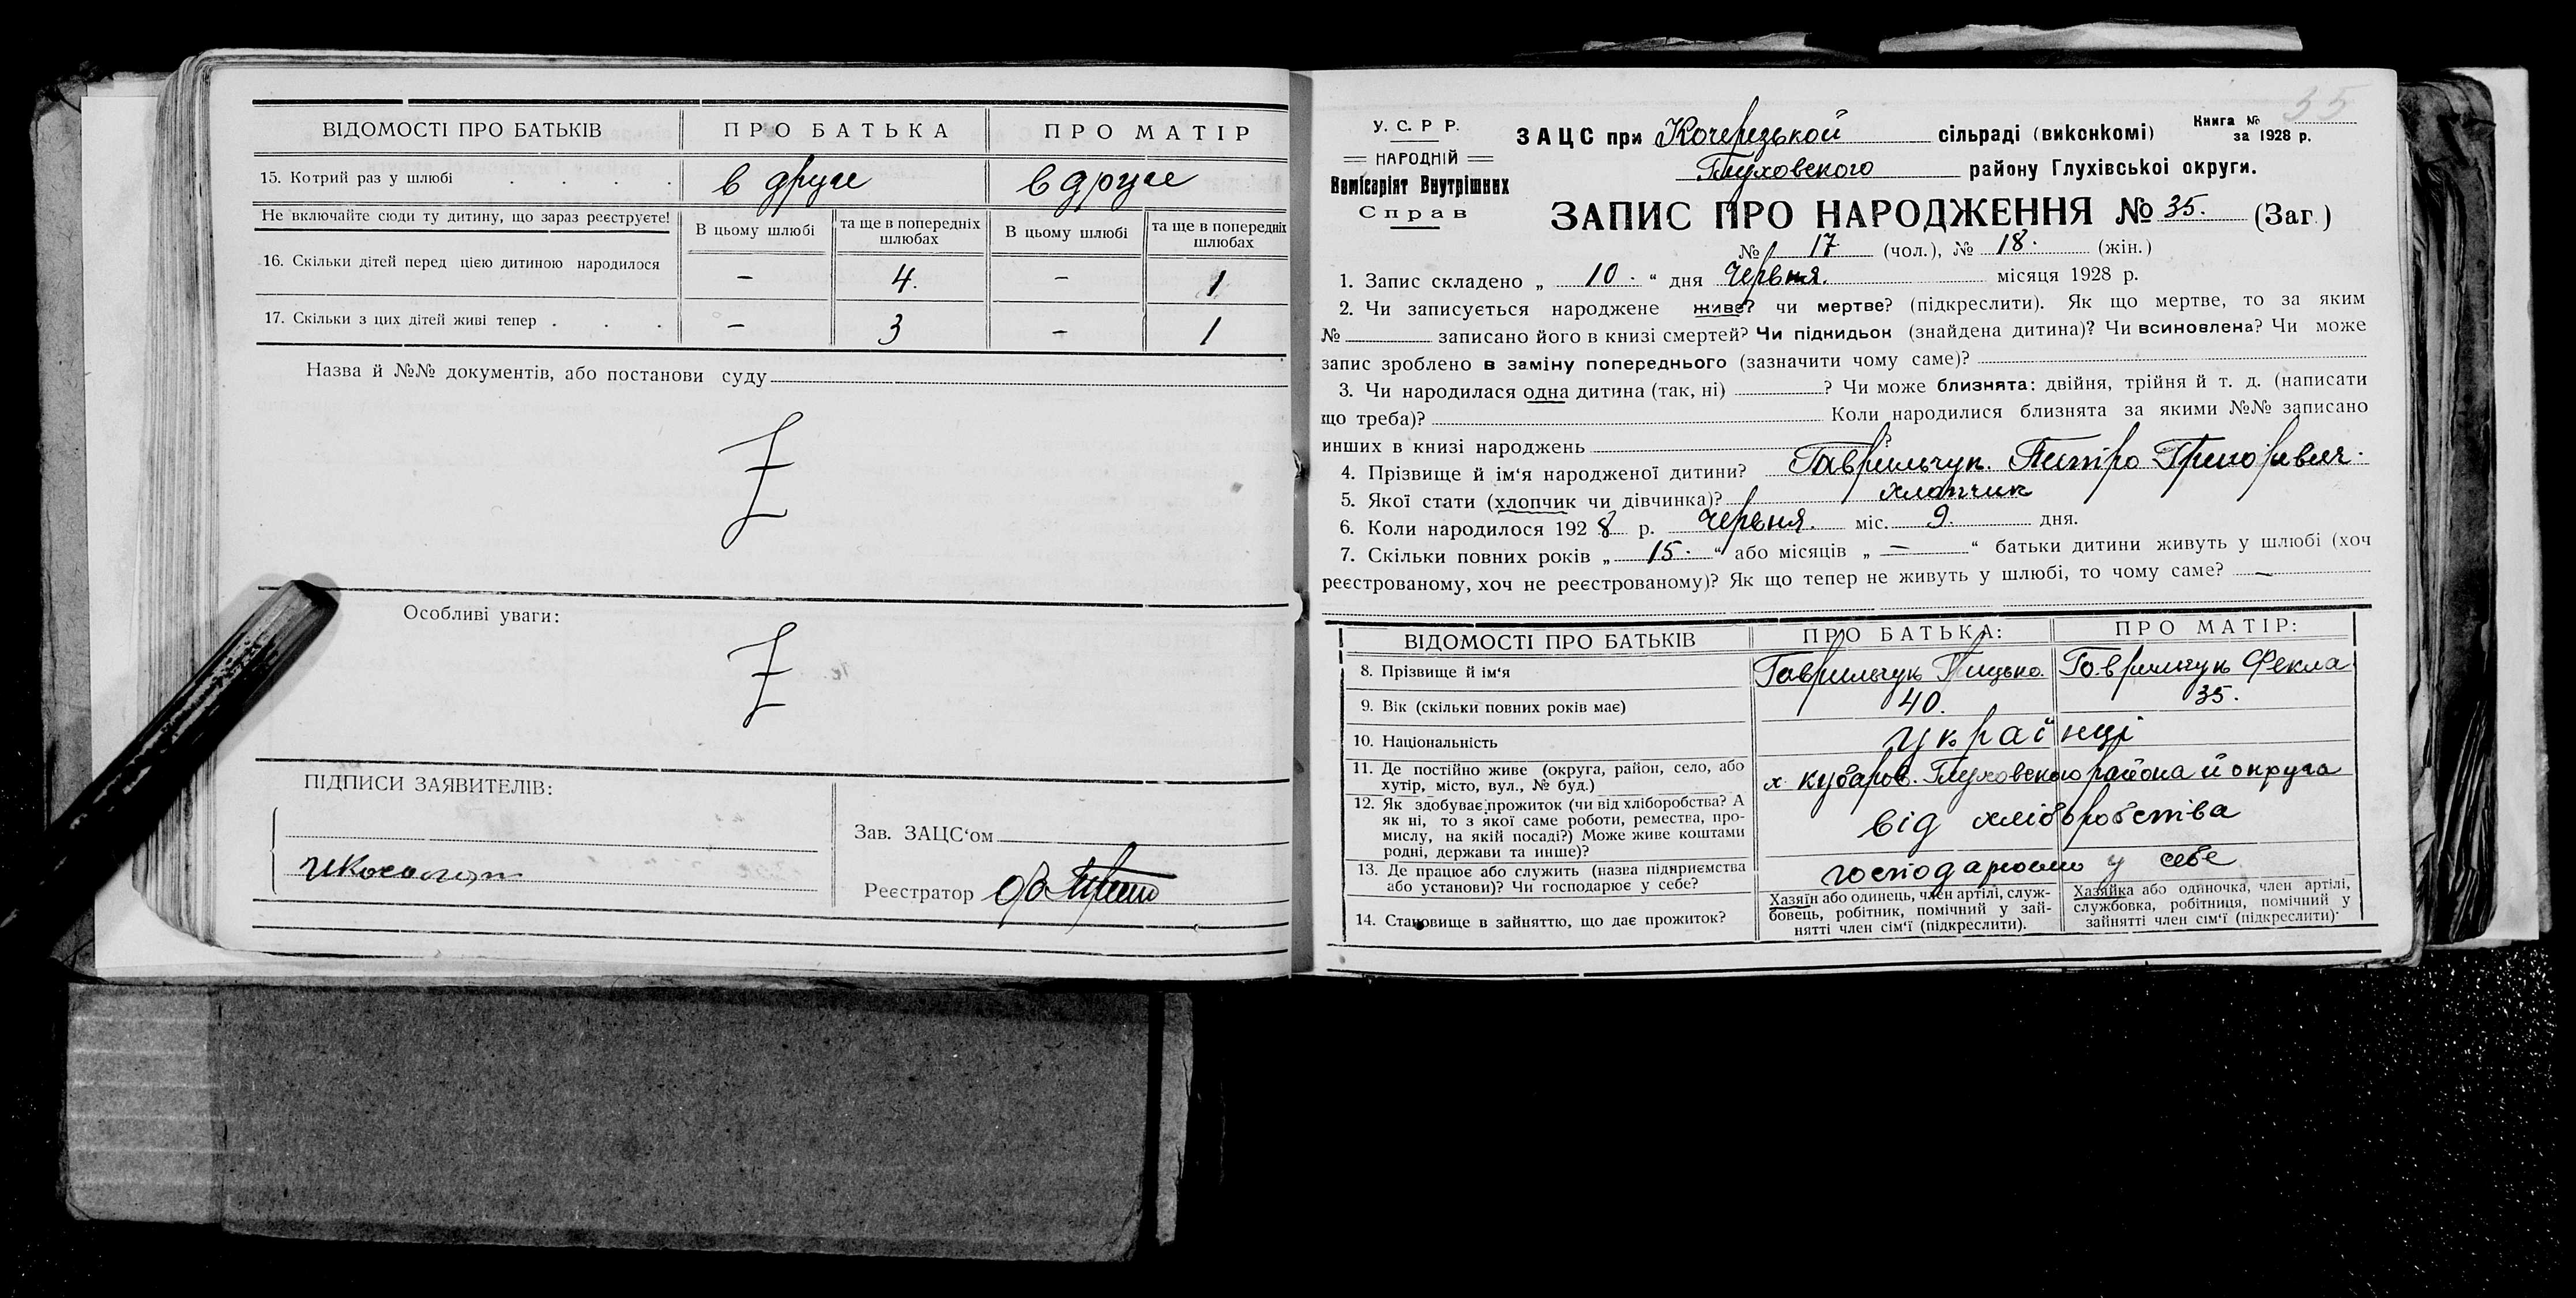 ВІДОМОСТІ ПРО БАТЬКІВ ПРО БАТЬКА ПРО МАТІР
15. Котрий раз у шлюбі . . . . в друге в друге
Не включайте сюди ту дитину, що зараз реєструєте!
В цьому шлюбі та ще в попередніх шлюбах В цьому шлюбі та ще в попередніх шлюбах
16. Скільки дітей перед цією дитиною народилося – 4. – 1
17. Скільки з цих дітей живі тепер . . . – 3 – 1
Назва й №№ документів, або постанови суду
Особливі уваги:
ПІДПИСИ ЗАЯВИТЕЛІВ:
Зав. ЗАЦС‘ом
Реєстратор
35
У. С. Р. Р.
НАРОДНІЙ
Комісаріят Внутрішних
Справ
ЗАЦС при Кочерізькой сільраді (виконкомі)
Книга №
за 1928 р.
Глуховского району Глухівської округи.
ЗАПИС ПРО НАРОДЖЕННЯ № 35. (Заг.)
№ 17 (чол.), № 18. (жін.)
1. Запис складено „ 10 . “ дня Червня. місяця 1928 р.
2. Чи записується народжене живе? чи мертве? (підкреслити). Як що мертве, то за яким
№ записано його в книзі смертей? Чи підкидьок (знайдена дитина)? Чи всиновлена? Чи може
запис зроблено в заміну попереднього (зазначити чому саме)?
3. Чи народилася одна дитина (так, ні) ? Чи може близнята: двійня, трійня й т. д. (написати
що треба)? Коли народилися близнята за якими №№ записано
инших в книзі народжень ?
4. Прізвище й ім‘я народженої дитини? Гаврильчук. Петро Григорівич.
5. Якої стати (хлопчик чи дівчинка)? хлопчик
6. Коли народилося 1928 р. Червня. міс. 9. дня.
7. Скільки повних років „ 15. “ або місяців „ — “ батьки дитини живуть у шлюбі (хоч
реєстрованому, хоч не реєстрованому)? Як що тепер не живуть у шлюбі, то чому саме? —
ВІДОМОСТІ ПРО БАТЬКІВ ПРО БАТЬКА: ПРО МАТІР:
8. Прізвище й ім‘я Гаврильчук Грицько. Гаврильчук Фекла
9. Вік (скільки повних років має) 40. 35.
10. Національність Українці
11. Де постійно живе (округа, район, село, або
хутір, місто, вул., № буд.) х. кубаров. Глуховского района й округа
12. Як здобуває прожиток (чи від хліборобства? А
як ні, то з якої саме роботи, ремества, про-
мислу, на якій посаді?) Може живе коштами
родні, держави та инше)? від хліборобства
13. Де працює або служить (назва підприємства
або установи)? Чи господарює у себе? господарюємо у себе
14. Становище в зайняттю, що дає прожиток?
Хазяїн або одинець, член артілі, служ-
бовець, робітник, помічний у зай-
нятті член сім‘ї (підкреслити).
Хазяйка або одиночка, член артілі,
службовка, робітниця, помічний у
зайнятті член сім‘ї (підкреслити).